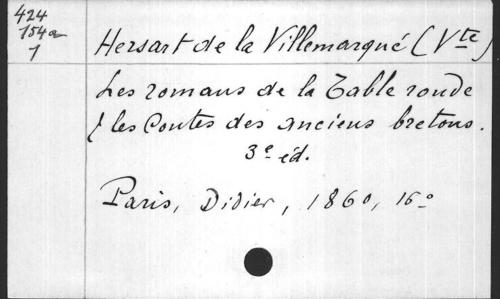 424
154a
1
Hersart de la Villemarqué (Vte)
Les romans de la Table ronde
& les Contes des anciens bretons.
3e éd.
Paris, Didier, 1860, 16o